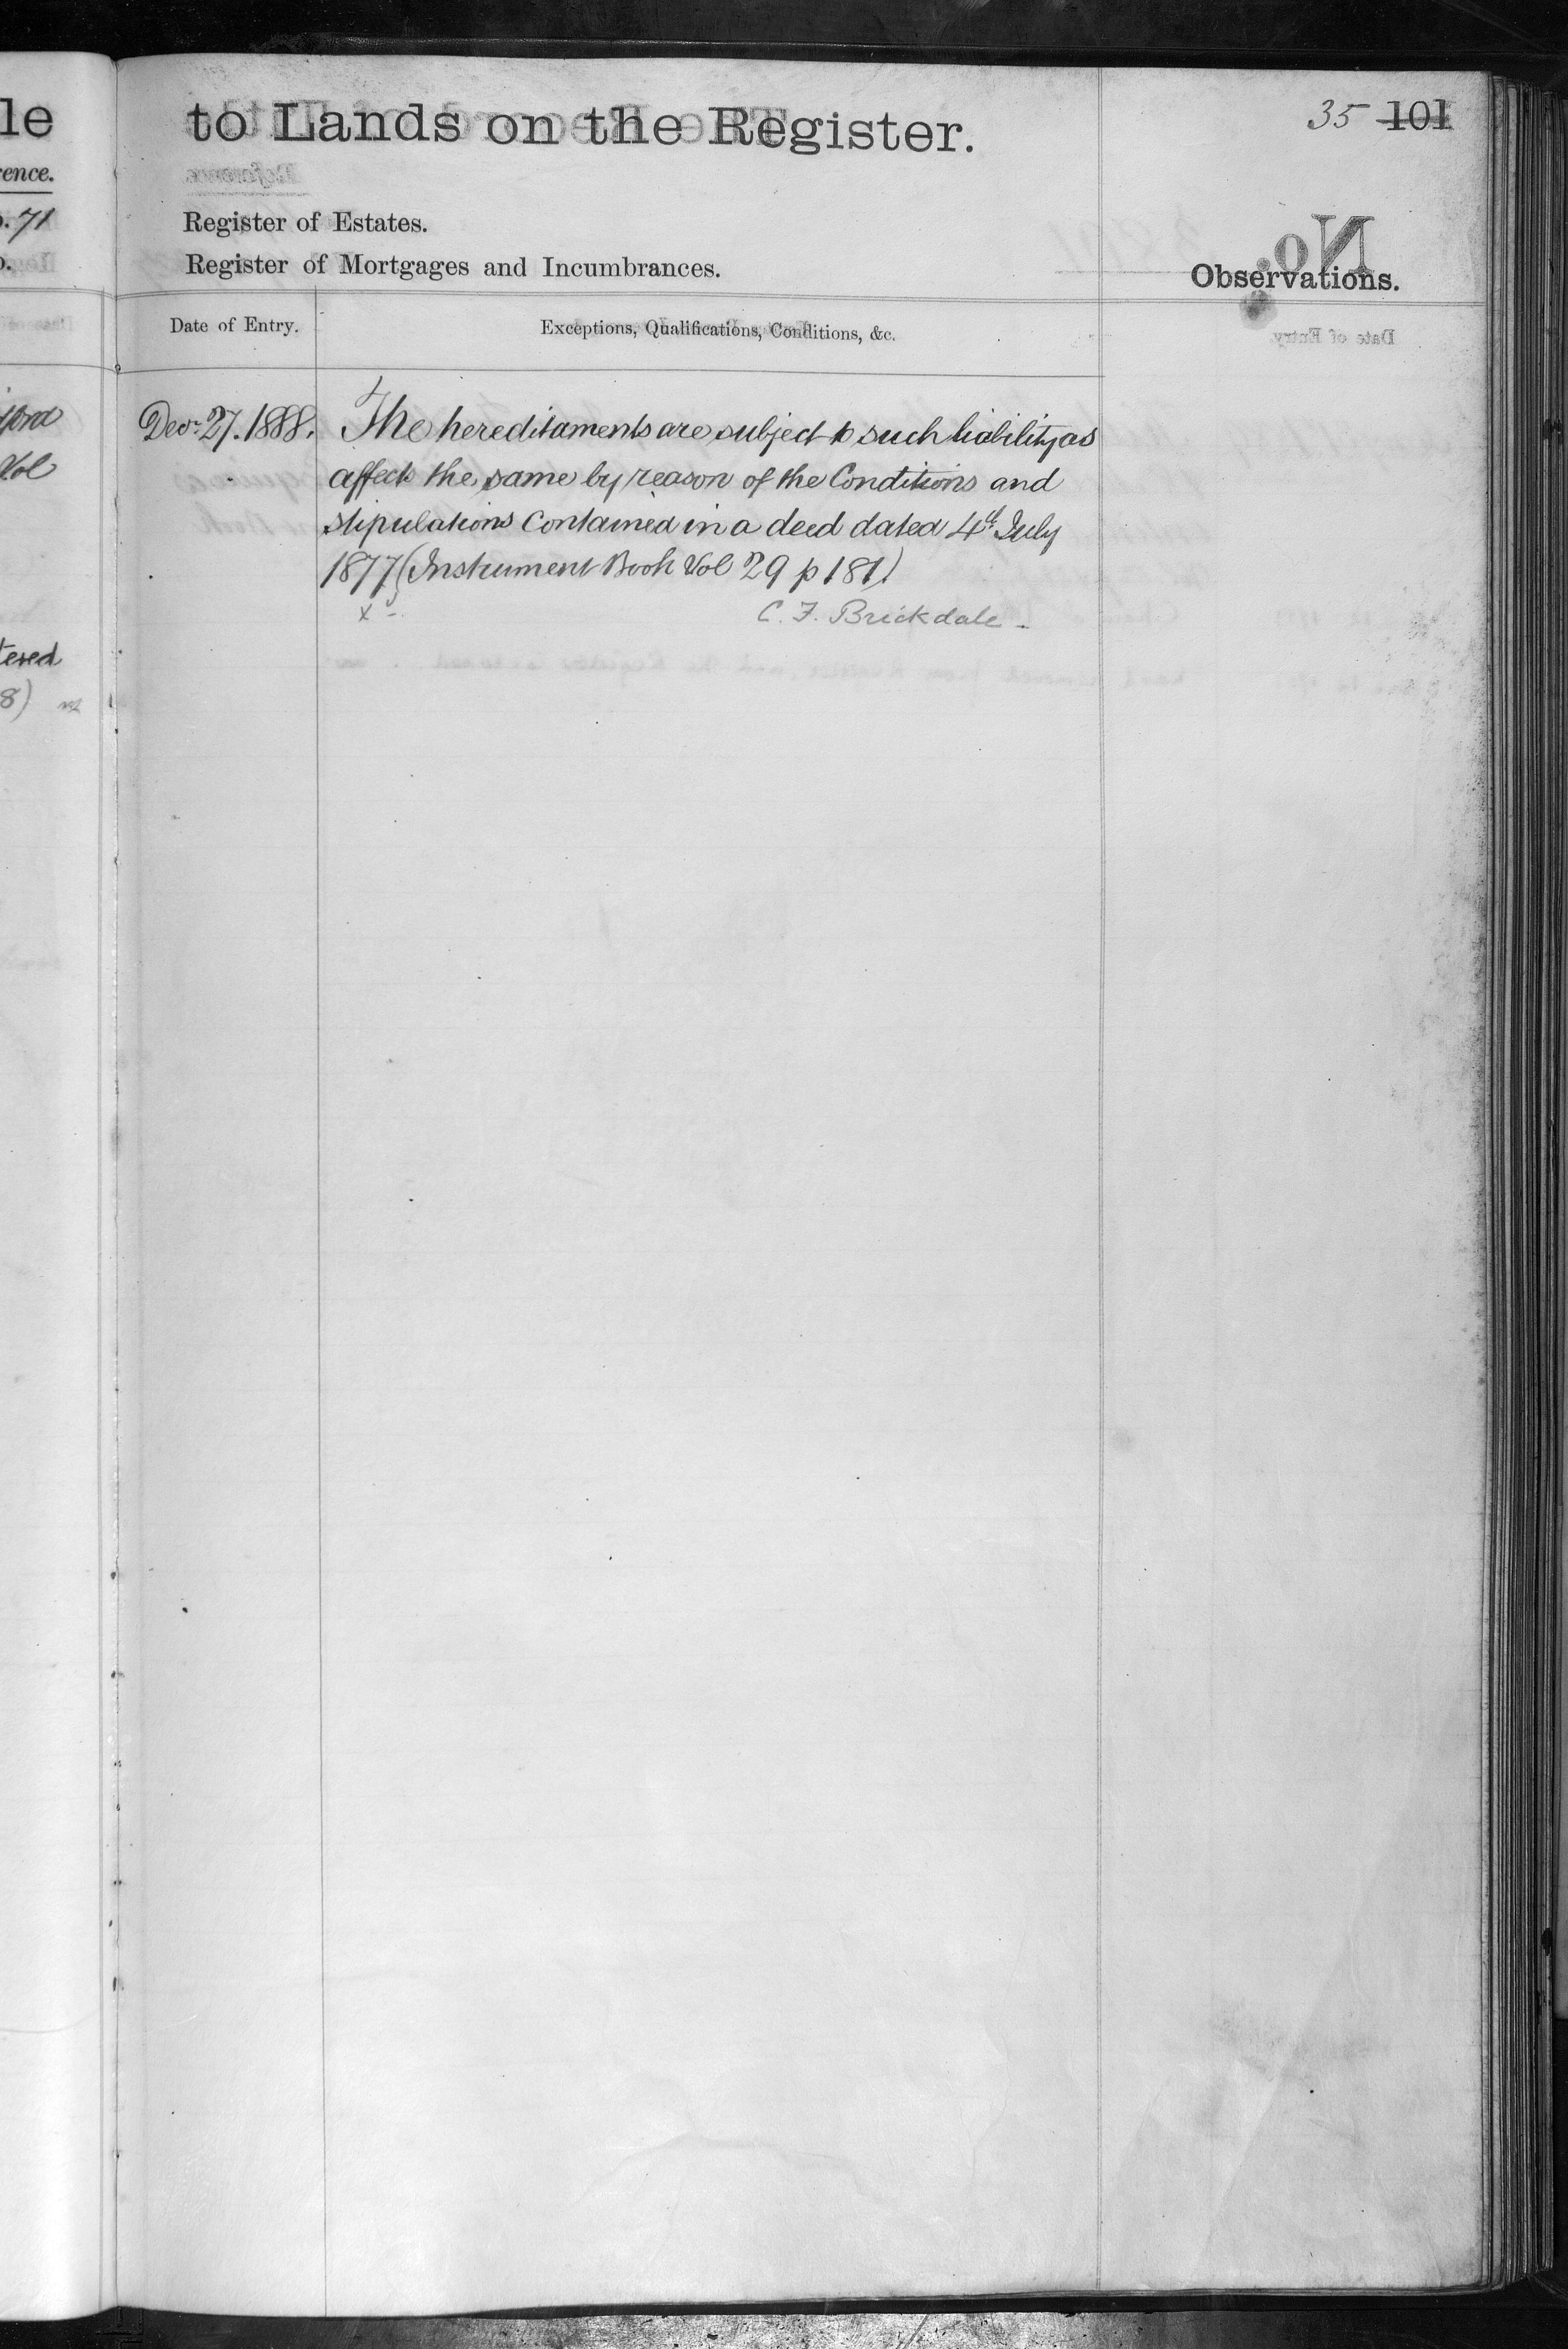 le
ence.
. 71
ford
Vol
tered
8)
to Lands on the Register.
35 101
Register of Estates.
Register of Mortgages and Incumbrances.
Observations.
Date of Entry.
Exceptions, Qualifications, Conditions, &c.
Decr 27. 1888. The hereditaments are subject to such liability as
affects the same by reason of the Conditions and
stipulations contained in a deed dated 4th July
1877 (Instrument Book Vol 29 p 181)
C. F. Brickdale -